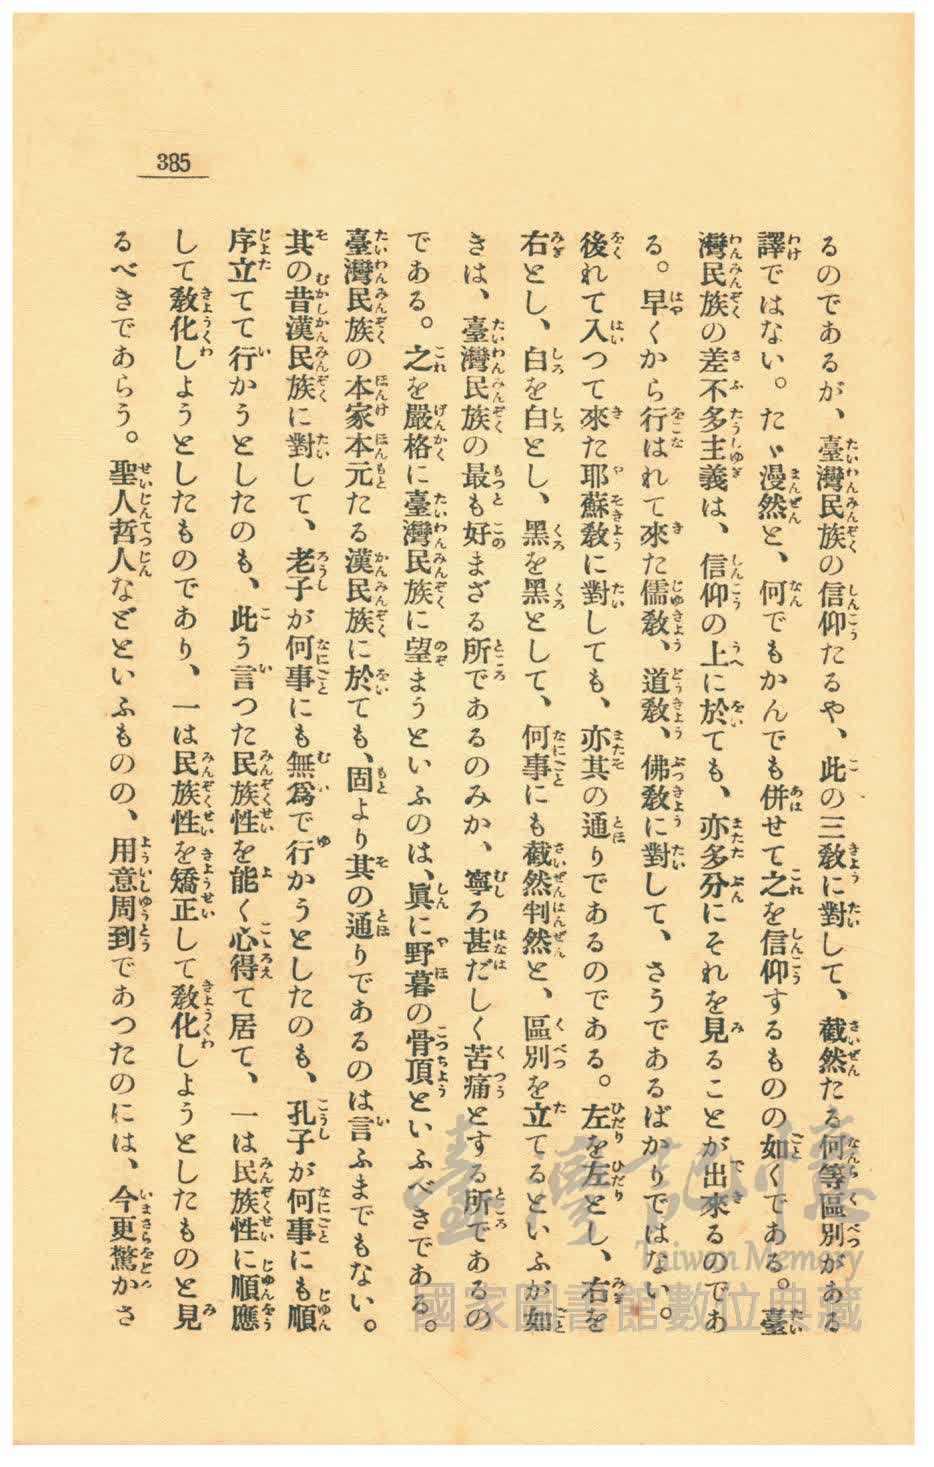 385
るのであるが、臺灣民族の信仰たるや、此の三敎に對して、截然たる何等區別がある
譯ではない。たゞ漫然と、何でもかんでも併せて之を信仰するものの如くである。臺
灣民族の差不多主義は、信仰の上に於ても、亦多分にそれを見ることが出來るのであ
る。早くから行はれて來た儒敎、道敎、佛敎に對して、さうであるばかりではない。
後れて入つて來た耶蘇敎に對しても、亦其の通りであるのである。左を左とし、右を
右とし、白を白とし、黑を黑として、何事にも截然判然と、區別を立てるといふが如
きは、臺灣民族の最も好まざる所であるのみか、寧ろ甚だしく苦痛とする所であるの
である。之を嚴格に臺灣民族に望まうといふのは、眞に野暮の骨頂といふべきである。
臺灣民族の本家本元たる漢民族に於ても、固より其の通りであるのは言ふまでもない。
其の昔漢民族に對して、老子が何事にも無爲で行かうとしたのも、孔子が何事にも順
序立てて行かうとしたのも、此う言つた民族性を能く心得て居て、一は民族性に順應
して敎化しようとしたものであり、一は民族性を矯正して敎化しようとしたものと見
るべきであらう。聖人哲人などといふものの、用意周到であつたのには、今更驚かさ
臺灣記憶
Taiwan Memory
國家圖書館數位典藏